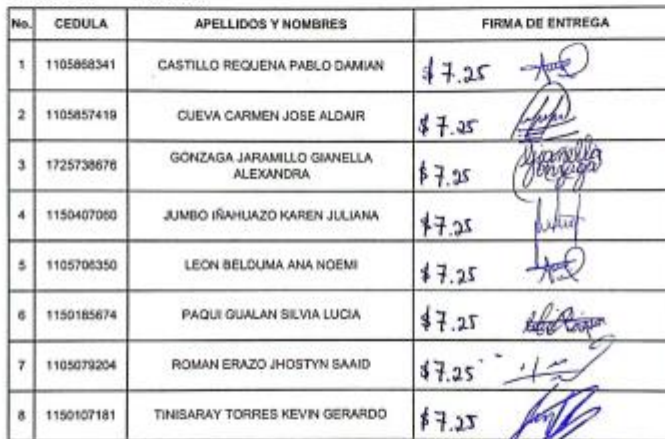 No. CEDULA APELLIDOS Y NOMBRES FIRMA DE ENTREGA
1 1105868341 CASTILLO REQUENA PABLO DAMIAN $ 7.25
2 1105857419 CUEVA CARMEN JOSE ALDAIR $ 7.25
3 1725738676 GONZAGA JARAMILLO GIANELLA ALEXANDRA $ 7.25 Gianella Gonzaga
4 1150407060 JUMBO IÑAHUAZO KAREN JULIANA $ 7.25
5 1105706350 LEON BELDUMA ANA NOEMI $ 7.25
6 1150185674 PAQUI GUALAN SILVIA LUCIA $ 7.25
7 1105079204 ROMAN ERAZO JHOSTYN SAAID $ 7.25
8 1150107181 TINISARAY TORRES KEVIN GERARDO $ 7.25